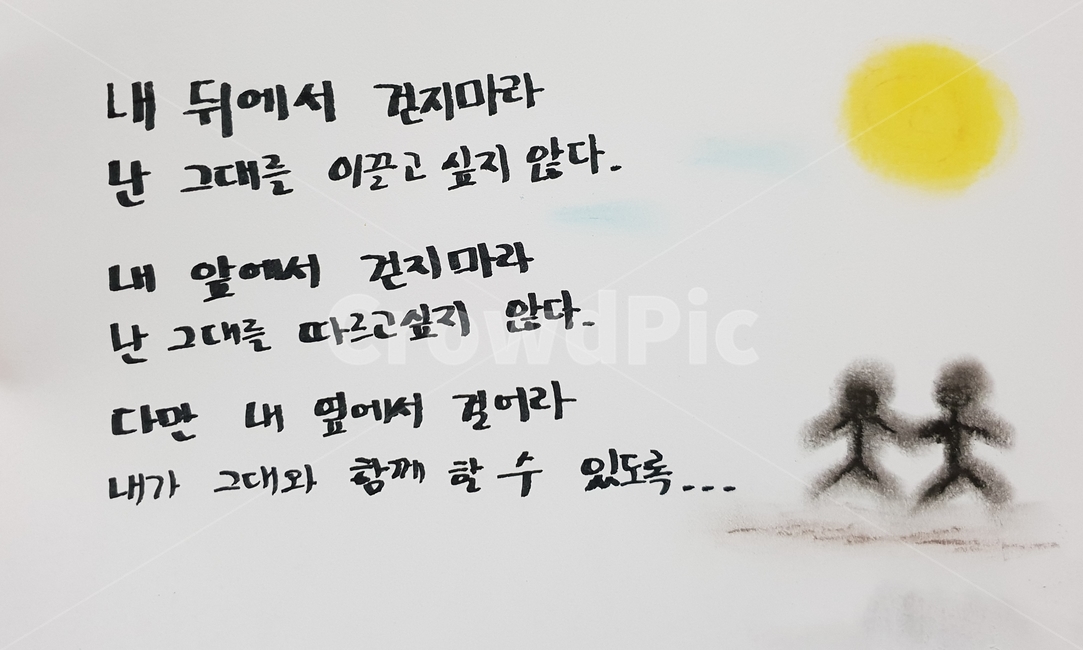 내 뒤에서 걷지마라
난 그대를 이끌고 싶지 않다.
내 앞에서 걷지마라
난 그대를 따르고싶지 않다.
다만 내 옆에서 걸어라
내가 그대와 함께 할 수 있도록...
CrowdPic